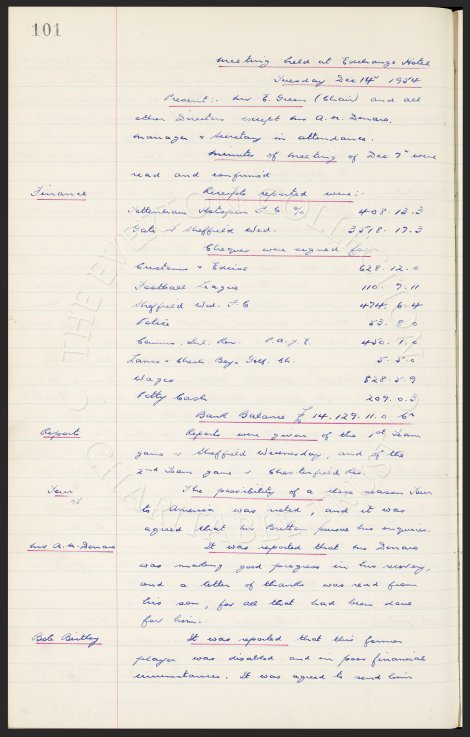 101
Meeting held at Exchange Hotel
Tuesday Dec 14th 1954
Present:- Mr E. Green (Chair) and all
other Directors except Mr A. N. Denaro.
Manager & Secretary in attendance.
Minutes of Meeting of Dec 7th were
read and confirmed
Finance Receipts reported were:-
Tottenham Hotspur F.C % 408.13.3
Gate v Sheffield Wed. 3518.17.3
Cheques were signed for
Customs & Excise 628.12.0
Football League 110.7.11
Sheffield Wed. F.C 474.6.4
Police 53.8.0
Comms. Inl. Rev. P.A.Y.E. 450.1.0
Lancs & Chesh. Boys 5.5.0
Wages 828.5.9
Petty Cash 209.0.3
Bank Balance £14,129.11.0 Cr
Reports Reports were given of the 1st Team
game v Sheffield Wednesday, and of the
2nd Team game v Chesterfield Res.
Tour The possibility of a close season Tour
to America was noted, and it was
agreed that Mr Britton pursue his enquiries.
Mr A. N. Denaro It was reported that Mr Denaro
was making good progress in his recovery,
and a letter of thanks was read from
his son, for all that had been done
for him.
Bob Bentley It was reported that this former
player was disabled and in poor financial
circumstances. It was agreed to send him
THE EVERTON COLLECTION
CHARITABLE